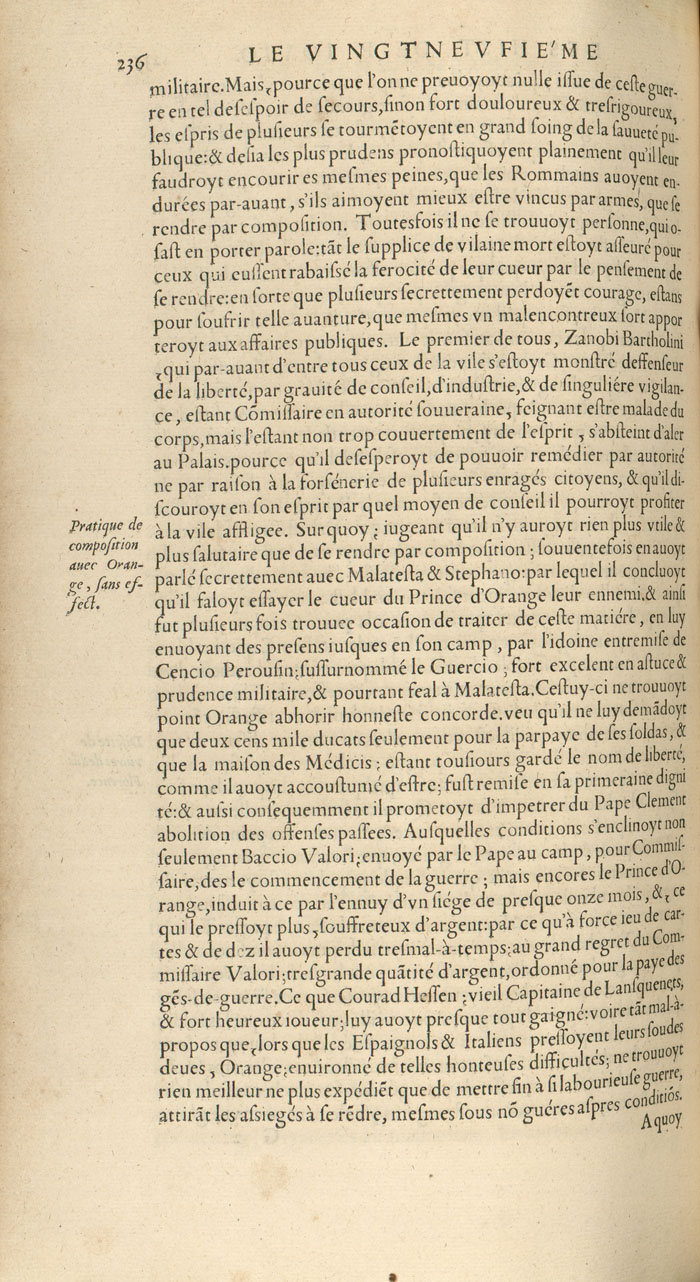 236
LE VINGTNEVFIE'ME
militaire.Mais,pource que l'on ne preuoyoyt nulle iſſue de ceſte guer-
re en tel deſeſpoir de ſecours,ſinon fort douloureux & treſrigoureux,
les eſpris de pluſieurs ſe tourmētoyent en grand ſoing de la ſauueté pu-
blique:& deſia les plus prudens pronoſtiquoyent plainement qu'il leur
faudroyt encourir es meſmes peines,que les Rommains auoyent en-
durées par-auant, s'ils aimoyent mieux eſtre vincus par armes, que ſe
rendre par compoſition. Toutesfois il ne ſe trouuoyt perſonne,qui o-
ſaſt en porter parole:tāt le ſupplice de vilaine mort eſtoyt aſſeuré pour
ceux qui euſſent rabaiſſé la ferocité de leur cueur par le penſement de
ſe rendre:en ſorte que pluſieurs ſecrettement perdoyēt courage, eſtans
pour ſoufrir telle auanture,que meſmes vn malencontreux ſort appor
teroyt aux affaires publiques. Le premier de tous, Zanobi Bartholini
,qui par-auant d'entre tous ceux de la vile s'eſtoyt monſtré deffenſeur
de la liberté,par grauité de conſeil,d'induſtrie,& de ſinguliére vigilan-
ce, eſtant Cōmiſſaire en autorité ſouueraine, feignant eſtre malade du
corps,mais l'eſtant non trop couuertement de l'eſprit, s'abſteint d'aler
au Palais.pource qu'il deſeſperoyt de pouuoir remédier par autorité
ne par raiſon à la forſénerie de pluſieurs enragés citoyens, & qu'il di-
ſcouroyt en ſon eſprit par quel moyen de conſeil il pourroyt profiter
à la vile affligee. Sur quoy; iugeant qu'il n'y auroyt rien plus vtile &
plus ſalutaire que de ſe rendre par compoſition; ſouuentefois en auoyt
parlé ſecrettement auec Malateſta & Stephano:par lequel il concluoyt
qu'il faloyt eſſayer le cueur du Prince d'Orange leur ennemi.& ainſi
fut pluſieurs fois trouuee occaſion de traiter de ceſte matiére, en luy
enuoyant des preſens iuſques en ſon camp, par l'idoine entremiſe de
Cencio Perouſin;ſurſurnommé le Guercio; fort excelent en aſtuce &
prudence militaire,& pourtant feal à Malateſta.Ceſtuy-ci ne trouuoyt
point Orange abhorir honneſte concorde.veu qu'il ne luy demādoyt
que deux cens mile ducats ſeulement pour la parpaye de ſes ſoldas, &
que la maiſon des Médicis; eſtant touſiours gardé le nom de liberté,
comme il auoyt accouſtumé d'eſtre; fuſt remiſe en ſa primeraine digni
té:& auſsi conſequemment il prometoyt d'impetrer du Pape Clement
abolition des offenſes paſſees. Auſquelles conditions s'enclinoyt non
ſeulement Baccio Valori;enuoyé par le Pape au camp, pour Commiſ-
ſaire,des le commencement de la guerre; mais encores le Prince d'O-
range,induit à ce par l'ennuy d'vn ſiége de preſque onze mois, &, ce
qui le preſſoyt plus, ſouffreteux d'argent:par ce qu'à force ieu de car-
tes & de dez il auoyt perdu treſmal-à-temps;au grand regret du Com-
miſſaire Valori;treſgrande quātité d'argent,ordonné pour la paye des
gēs-de-guerre.Ce que Courad Heſſen; vieil Capitaine de Lanſquenets,
& fort heureux ioueur;luy auoyt preſque tout gaigné:voire tāt mal-à-
propos que,lors que les Eſpaignols & Italiens preſſoyent leurs ſoudes
deues, Orange;enuironné de telles honteuſes difficultés; ne trouuoyt
rien meilleur ne plus expédiēt que de mettre fin à ſi labourieuſe guerre,
attirāt les aſsiegés à ſe rēdre, meſmes ſous nō guéres aſpres conditiōs.
A quoy
Pratique de
compoſition
auec Oran-
ge, ſans eſ-
fect.